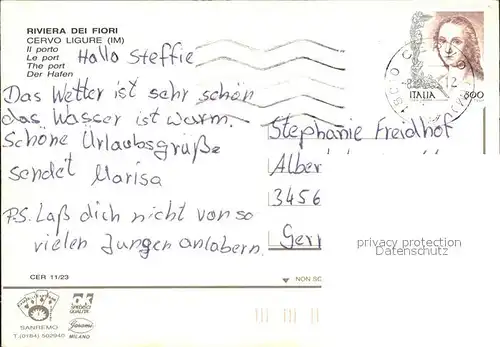 RIVIERA DEI FIORI
CERVO LIGURE (IM)
Il porto
Le port
The port
Der Hafen
Hallo Steffie
Das Wetter ist sehr schön
das Wasser ist warm.
Schöne Urlaubsgrüße
sendet Marisa
P.S. Laß dich nicht von so
vielen Jungen anlabern.
ITALIA 800
12
Stephanie Freidhof
Alber
3456
Gerr
privacy protection
Datenschutz
CER 11/23
NON SC
SANREMO
T. (0184) 502940
ok
SPEDISCI
QUALITÀ
MILANO